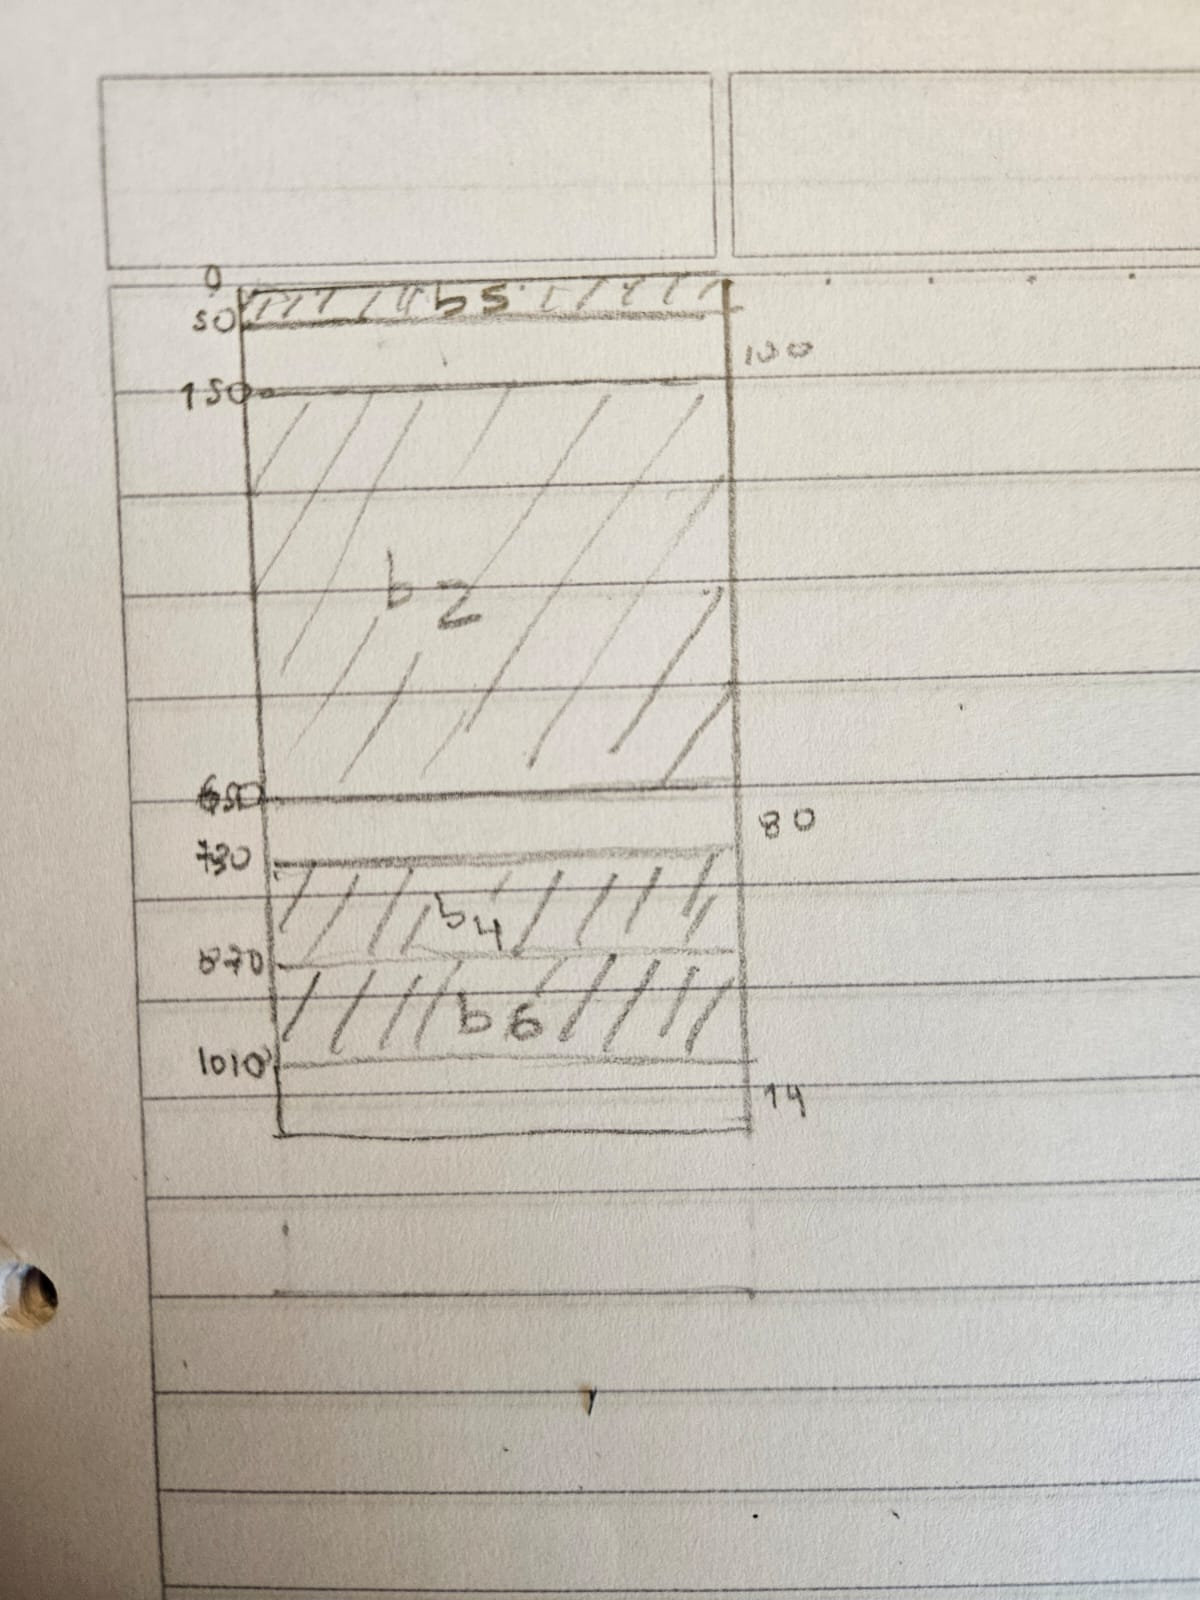 0
b5
50
100
150
b2
650
80
730
b4
870
b6
1010
14